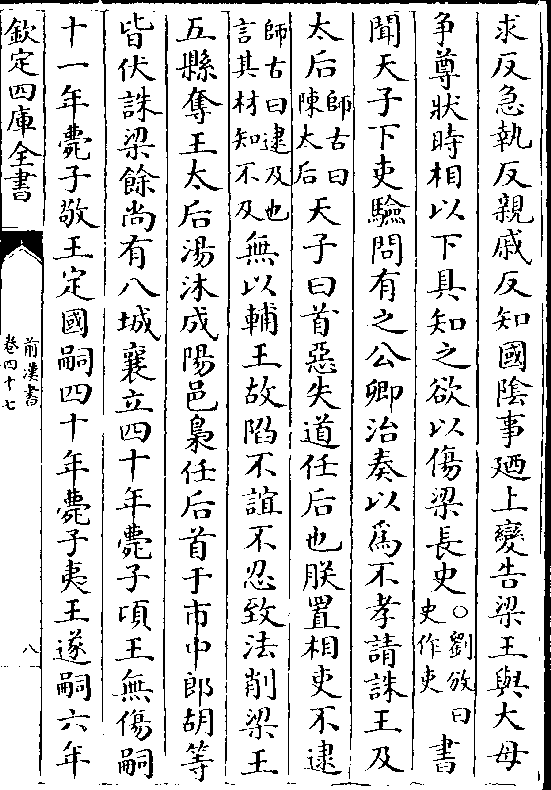 求反急執反親戚反知國陰事廼上變告梁王與大母
争尊狀時相以下具知之欲以傷梁長吏○劉攽曰書
史作吏
聞天子下吏驗問有之公卿治奏以為不孝請誅王及
太后師古曰
陳太后天子曰首惡失道任后也朕置相吏不逮
師古曰逮及也
言其材知不及無以輔王故陷不誼不忍致法削梁王
五縣奪王太后湯沐成陽邑梟任后首于市中郎胡等
皆伏誅梁餘尚有八城襄立四十年薨子頃王無傷嗣
十一年薨子敬王定國嗣四十年薨子夷王遂嗣六年
欽定四庫全書
前漢書
卷四十七
八